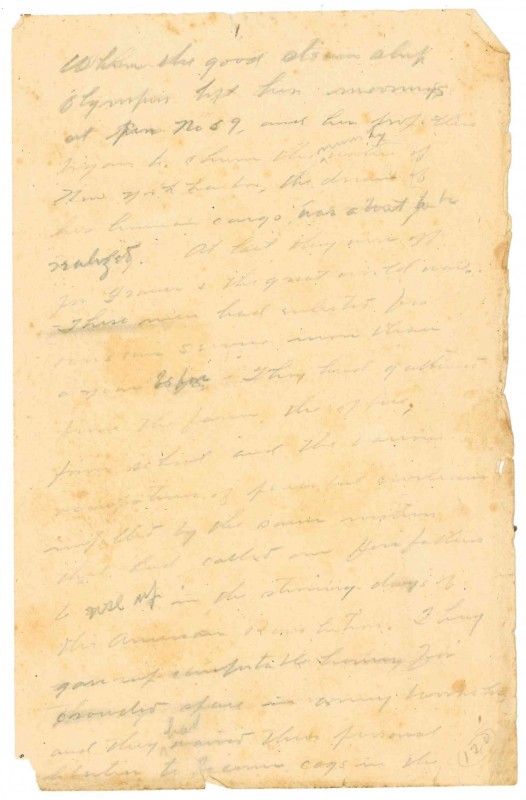 1
When the good steam ship
Olympic left her moorings
at Pier No 59, and her propellers
began to churn the murky waters of
New York harbor, the dream of
her human cargo was about to be
realized. At last they were off
for France & the great world war.
These men had enlisted for
service more than
a year before. They had gathered
from the farm, the office,
from school and the various
occupations of peaceful
impelled by the same motive
that had called our forefathers
to in the stirring days of
the American Revolution. They
gave up comfortable homes for
crowded space in army barracks
and they had their personal
to become cogs in the
120